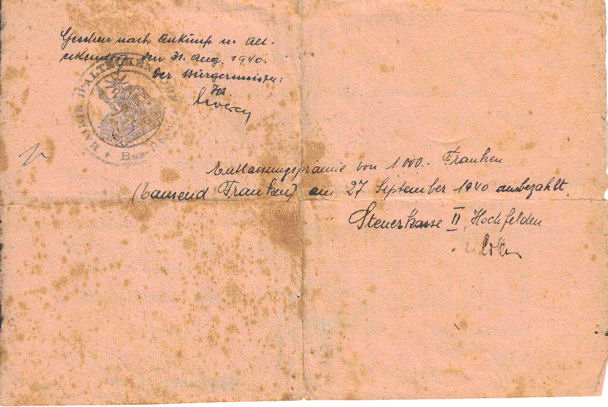 Gesehen nach Ankunft in Alt-
eckendorf den 31. Aug. 1940.
Der Bürgermeister:
MAIRIE D'ALTECKENDORF
Bas-Rhin
Entlassungsprämie von 1000.- Franken
(tausend Franken) am 27 September 1940 ausbezahlt.
Steuerkasse II, Hochfelden